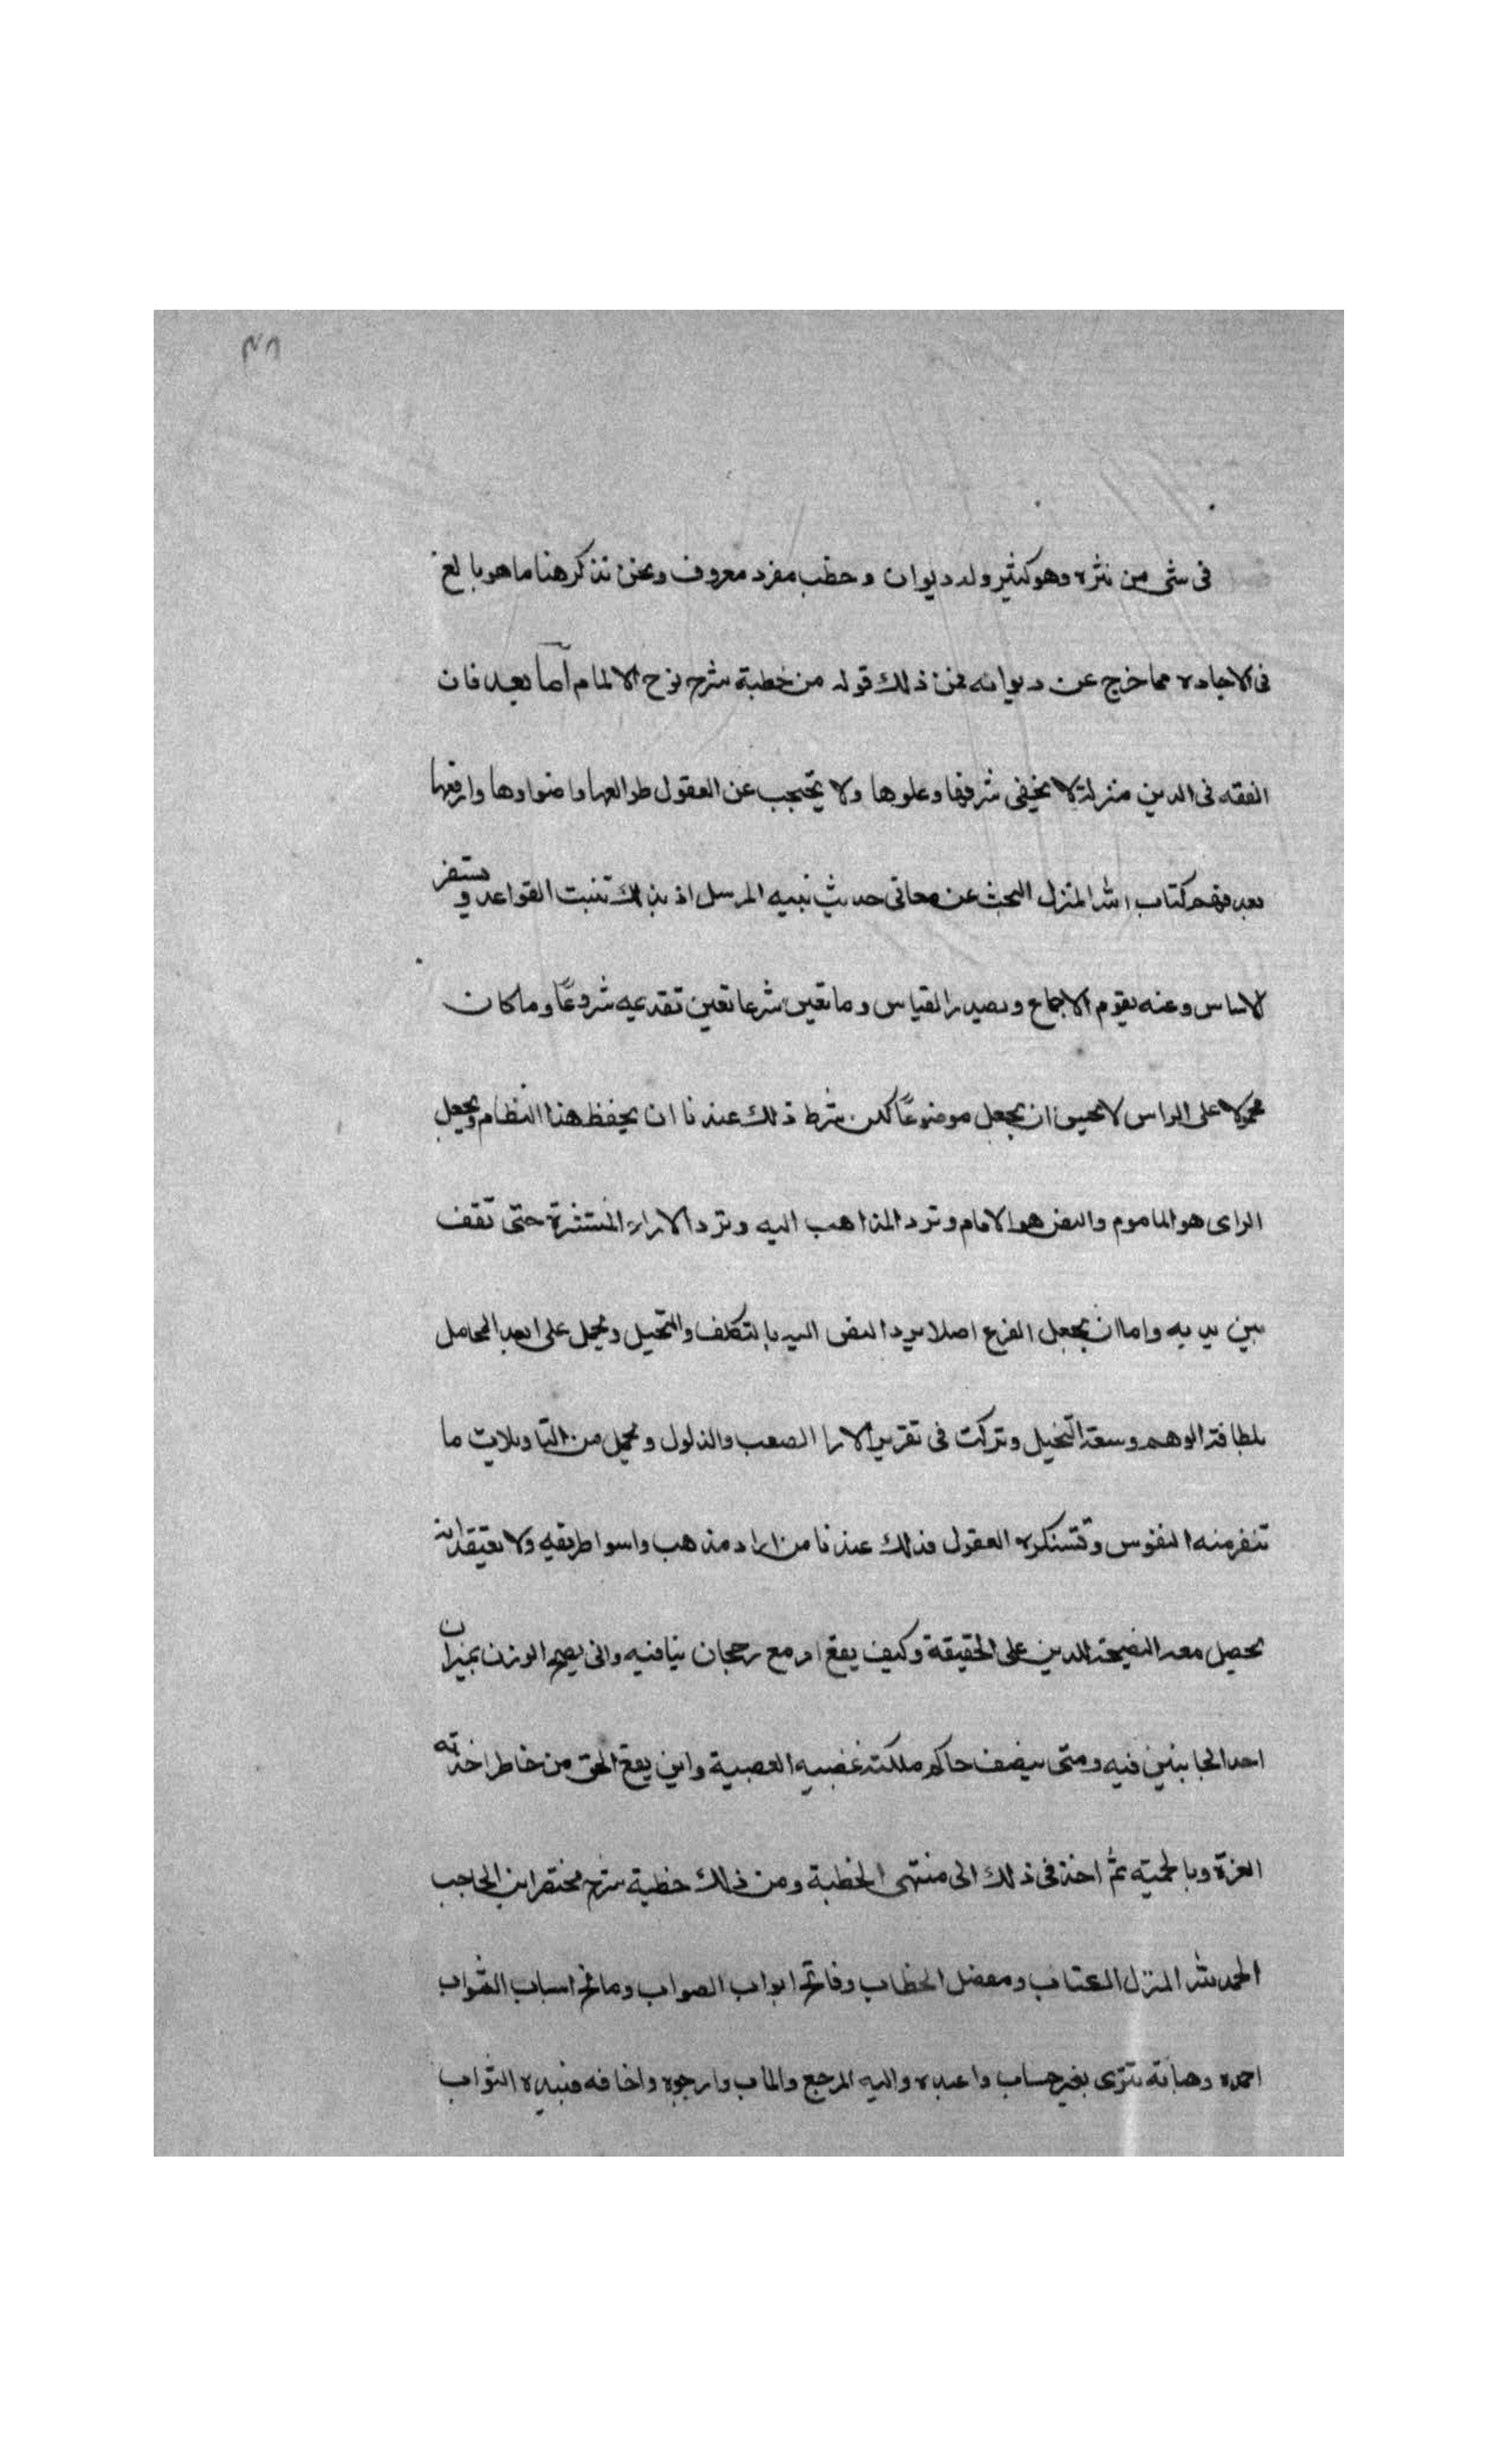 ٣٨
فى شى من نثره وهو كثير وله ديوان وخطب مفرد معروف ونحن نذكر هنا ما هو بالغ
فى الاجاده مما خرج عن ديوانه فمن ذلك قوله من خطبة شرح نوح الالمام اما بعد فان
الفقه فى الدين منزلة لا يخفى شرفها وعلوها ولا يحتجب عن العقول طوالعها واضواوها وارفعها
بعد فهم كتاب الله المنزل البحث عن معانى حديث نبيه المرسل اذ بذلك تثبت القواعد ويستقر
الاساس وعنه يقوم الاجماع ويصدر القياس وما تعين شرعا تعين تقديمه شروعًا وما كان
محمولا على الراس لا يحسن ان يجعل موضوعًا لكن شرط ذلك عندنا ان يحفظ هذا النظام ويجعل
الراى هو الماموم والنص هو الامام وترد المذاهب اليه وترد الاراء المنتشرة حتى تقف
بين يديه واما ان يجعل الفرع اصلا يرد النص اليه بالتكلف والتحيل ويحمل على ابعد المحامل
بلطافة الوهم وسعة التخيل وتركت فى تقرير الارا الصعب والذلول ويحمل من التاويلات ما
تنفر منه النفوس وتستنكره العقول فذلك عندنا من اراد مذهب واسوا طريقه ولا يعتقد انه
يحصل معه النصيحة للدين على الحقيقة وكيف يقع امر مع رجحان ينافيه وانى يصح الوزن بميزان
احد الجانبين فيه ومتى ينصف حاكم ملكته غضبيه العصبية واين يقع الحق من خاطر اخذته
العزة وبالحميه ثم اخذ فى ذلك الى منتهى الخطبة ومن ذلك خطبة شرح مختصر ابن الحاجب
الحمد لله المنزل الكتاب ومفصل الخطاب وفاتح ابواب الصواب ومانح اسباب الثواب
احمده وهباته تترى بغير حساب واعبده واليه المرجع والماب وارجوه واخافه فبيده الثواب